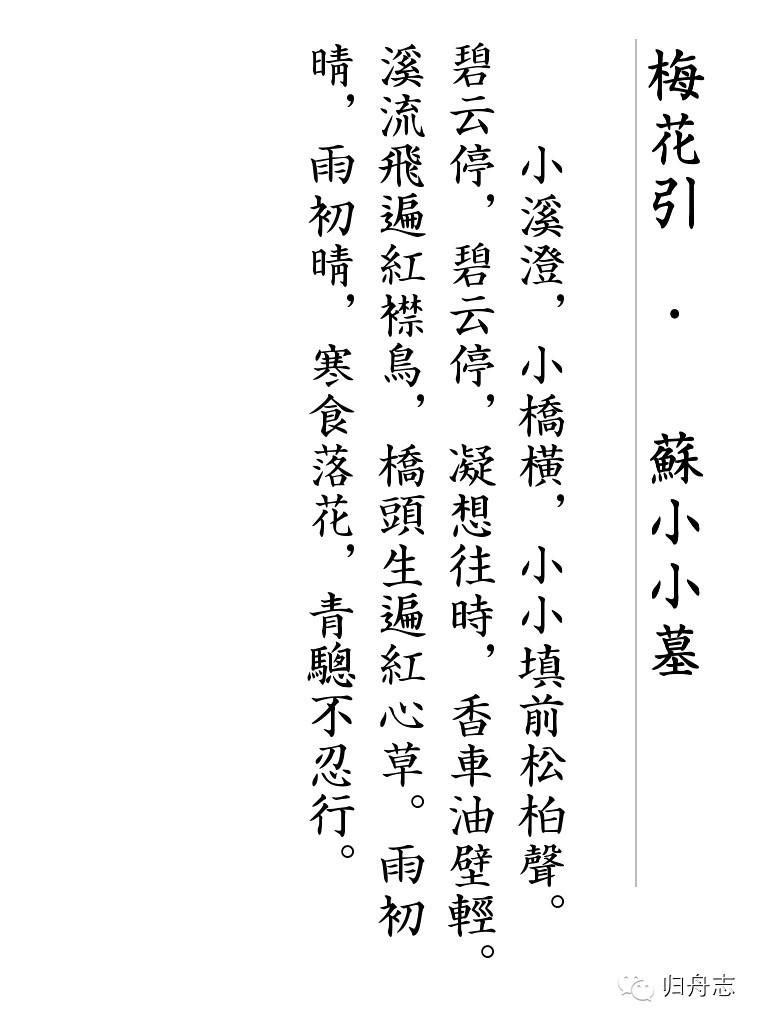 梅花引 · 蘇小小墓
小溪澄，小橋橫，小小填前松柏聲。
碧云停，碧云停，凝想往時，香車油壁輕。
溪流飛遍紅襟鳥，橋頭生遍紅心草。雨初
晴，雨初晴，寒食落花，青驄不忍行。
归舟志